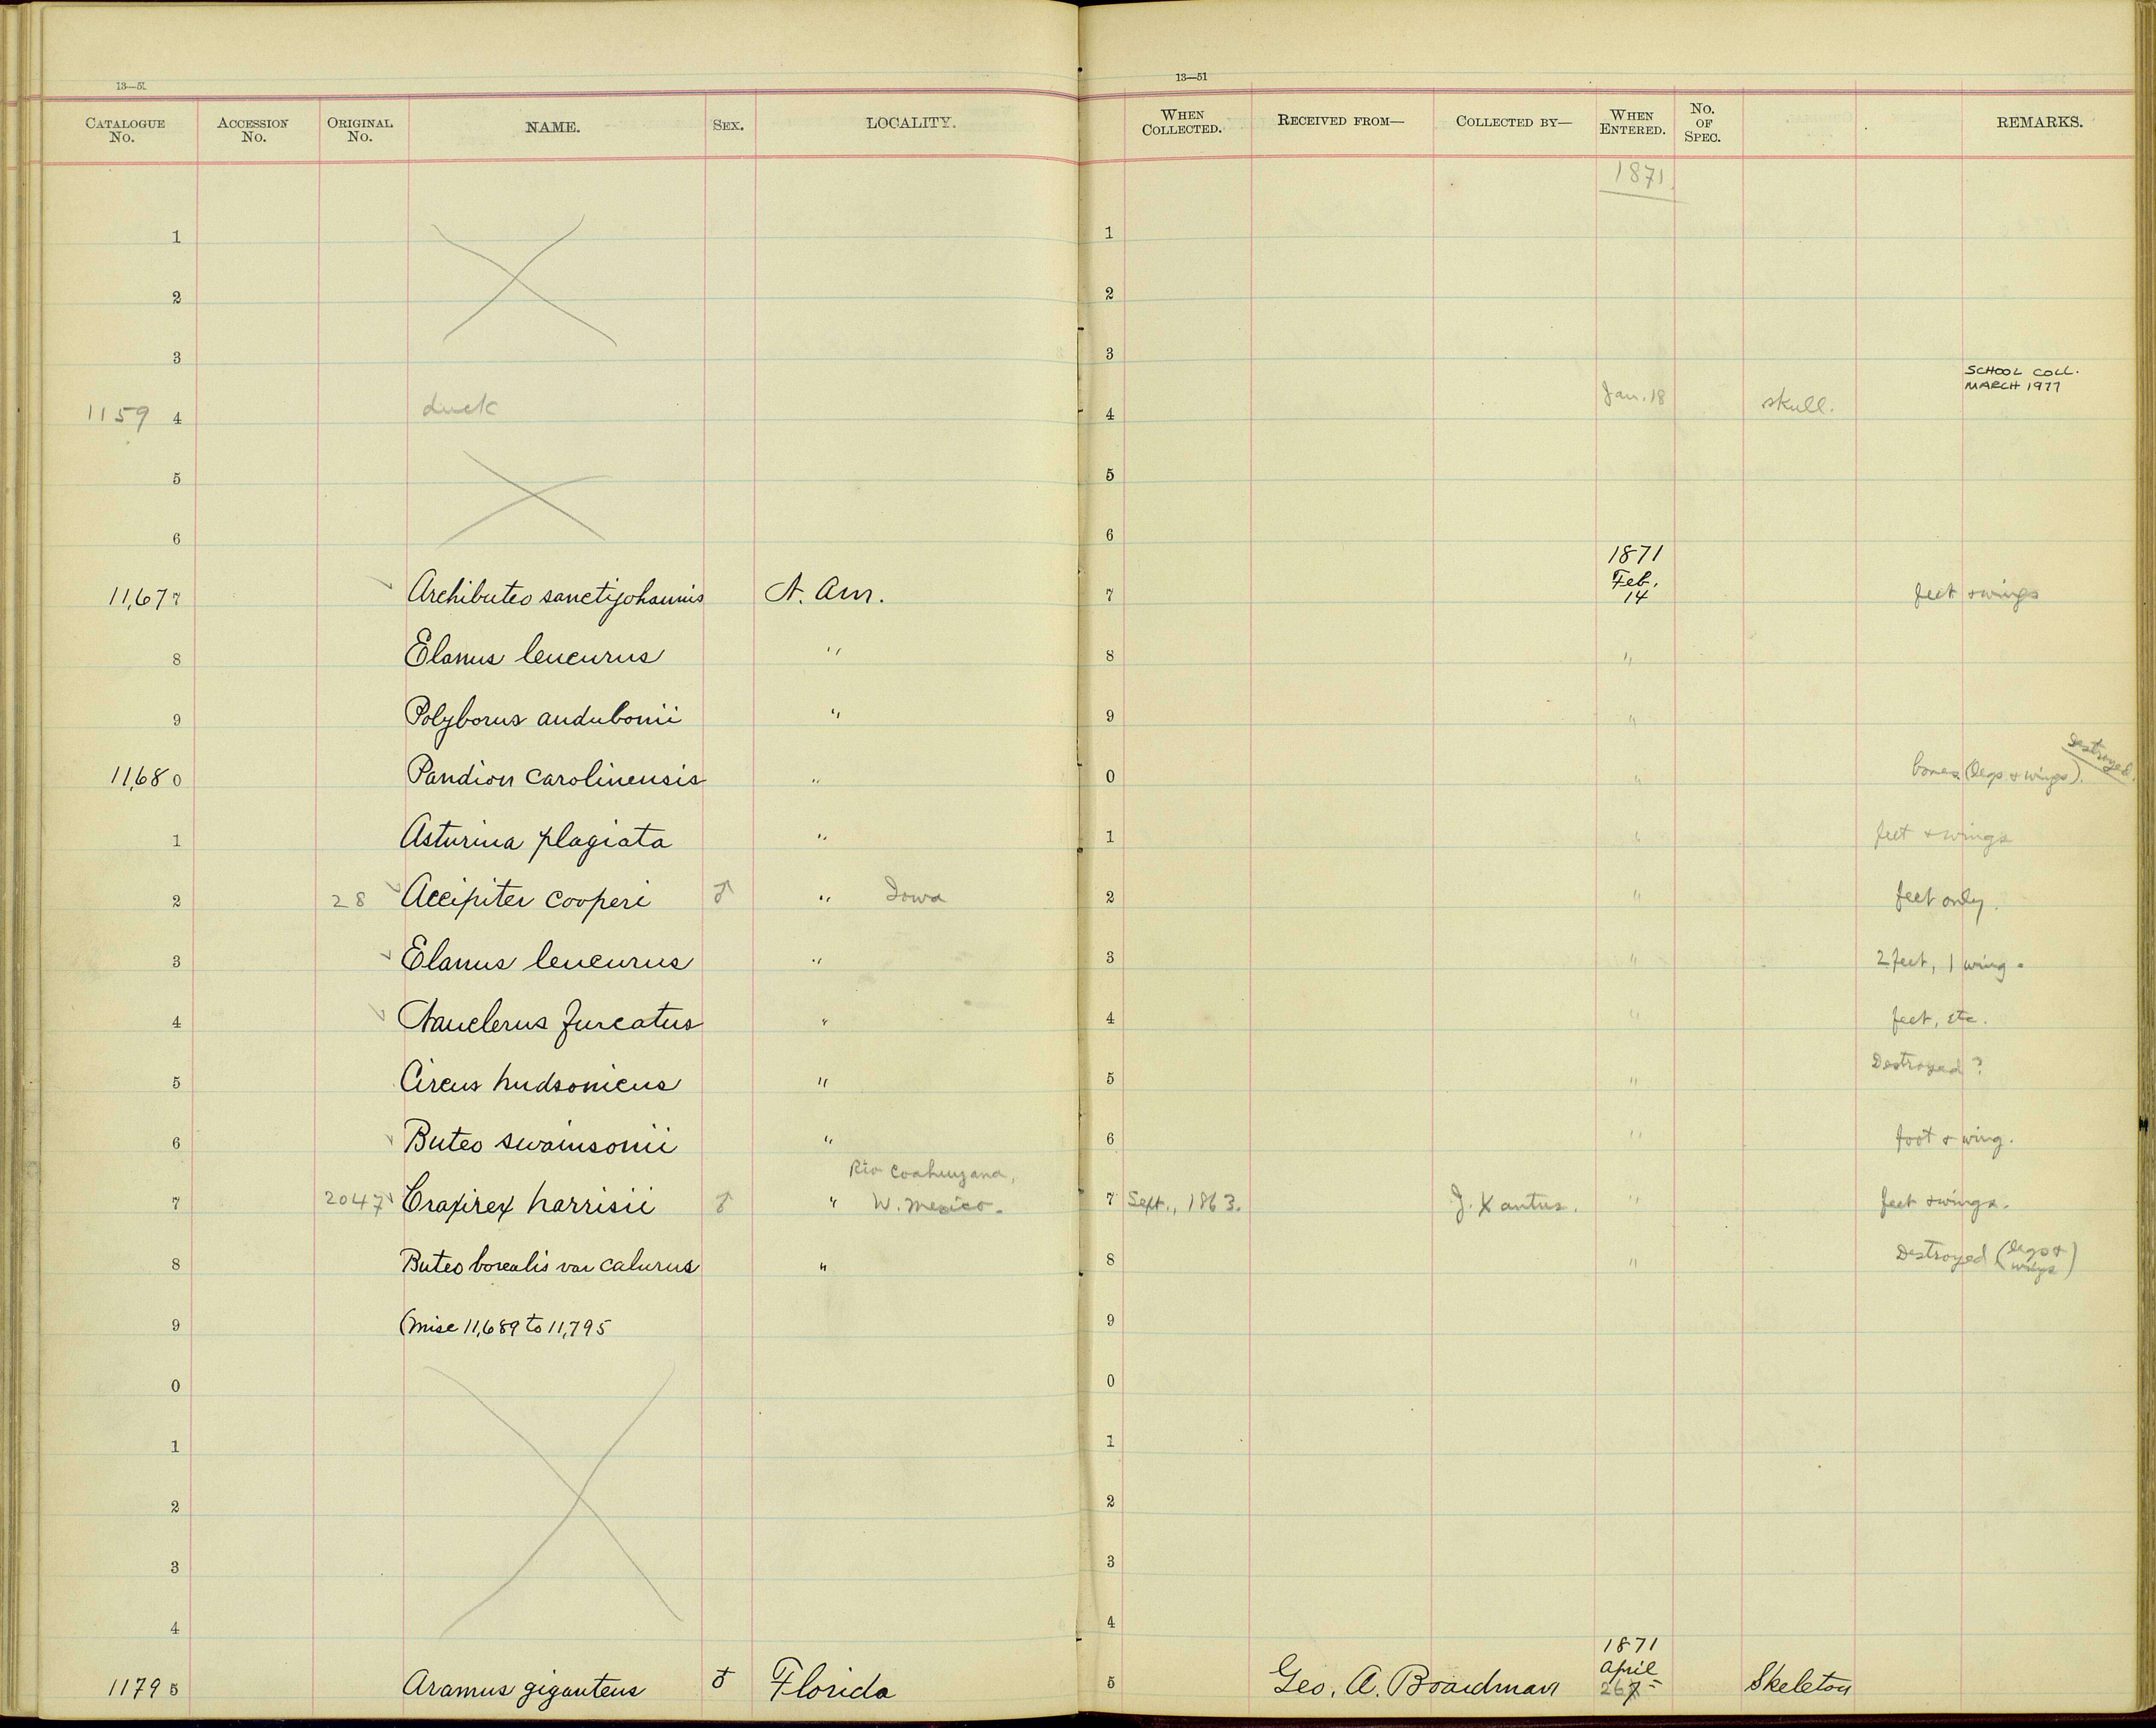 13—51
13—51
CATALOGUE No. ACCESSION No. ORIGINAL No. NAME. SEX. LOCALITY. WHEN COLLECTED. RECEIVED FROM— COLLECTED BY— WHEN ENTERED. No. OF SPEC. REMARKS.
1871
1 1
2 2
3 3
SCHOOL COLL.
MARCH 1977
1159 4 duck 4 Jan. 18 skull.
5 5
6 6
1871
Feb.
11,677 Archibuteo sanctijohannis N. Am. 7 14 feet & wings
8 Elanus leucurus " 8 "
9 Polyborus audubonii " 9 "
11,680 Pandion carolinensis " 0 " bones (legs & wings). Destroyed.
1 Asturina plagiata " 1 " feet & wings
2 28 Accipiter cooperi ♂ " Iowa 2 " feet only.
3 Elanus leucurus " 3 " 2 feet, 1 wing.
4 Nauclerus furcatus " 4 " feet, etc.
5 Circus hudsonicus " 5 " Destroyed ?
6 Buteo swainsonii " 6 " foot & wing.
Rio Coahuayana,
7 2047 Craxirex harrisii ♂ " W. Mexico. 7 Sept., 1863. J. Xantus. " feet & wings.
8 Buteo borealis var calurus " 8 " Destroyed (legs & wings)
9 (Misc 11,689 to 11,795 9
0 0
1 1
2 2
3 3
4 4
1871
April
11795 Aramus giganteus ♂ Florida 5 Geo. A. Boardman 26 Skeleton